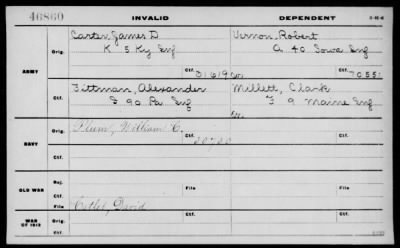 46860 INVALID DEPENDENT
Carter, James D Vernon, Robert
Orig. K 5 Ky Inf A 40 Iowa Inf
ARMY Ctf. Ctf.
Tittman, Alexander Millett, Clark
Ctf. 90 Pa Inf 9 Maine Inf
Plum, William C.
Orig. Ctf.
NAVY 20720
Ctf.
OLD WAR File File
Cotlet, David
WAR OF 1812